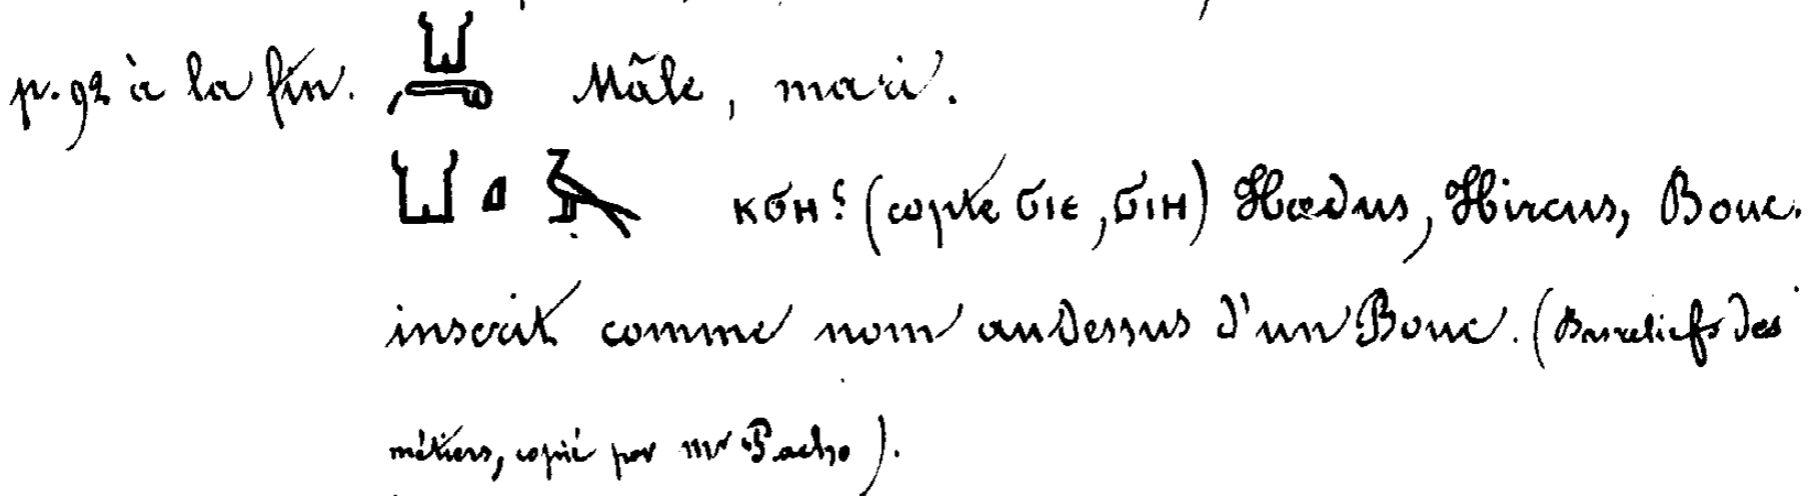 p. 92 à la fin. Mâle, mari.
ⲕϭⲏ? (copte ϭⲓⲉ, ϭⲓⲏ) Hœdus, Hircus, Bouc.
inscrit comme nom audessus d'un Bouc. (Basreliefs des
métiers, copié par Mr Pacho).